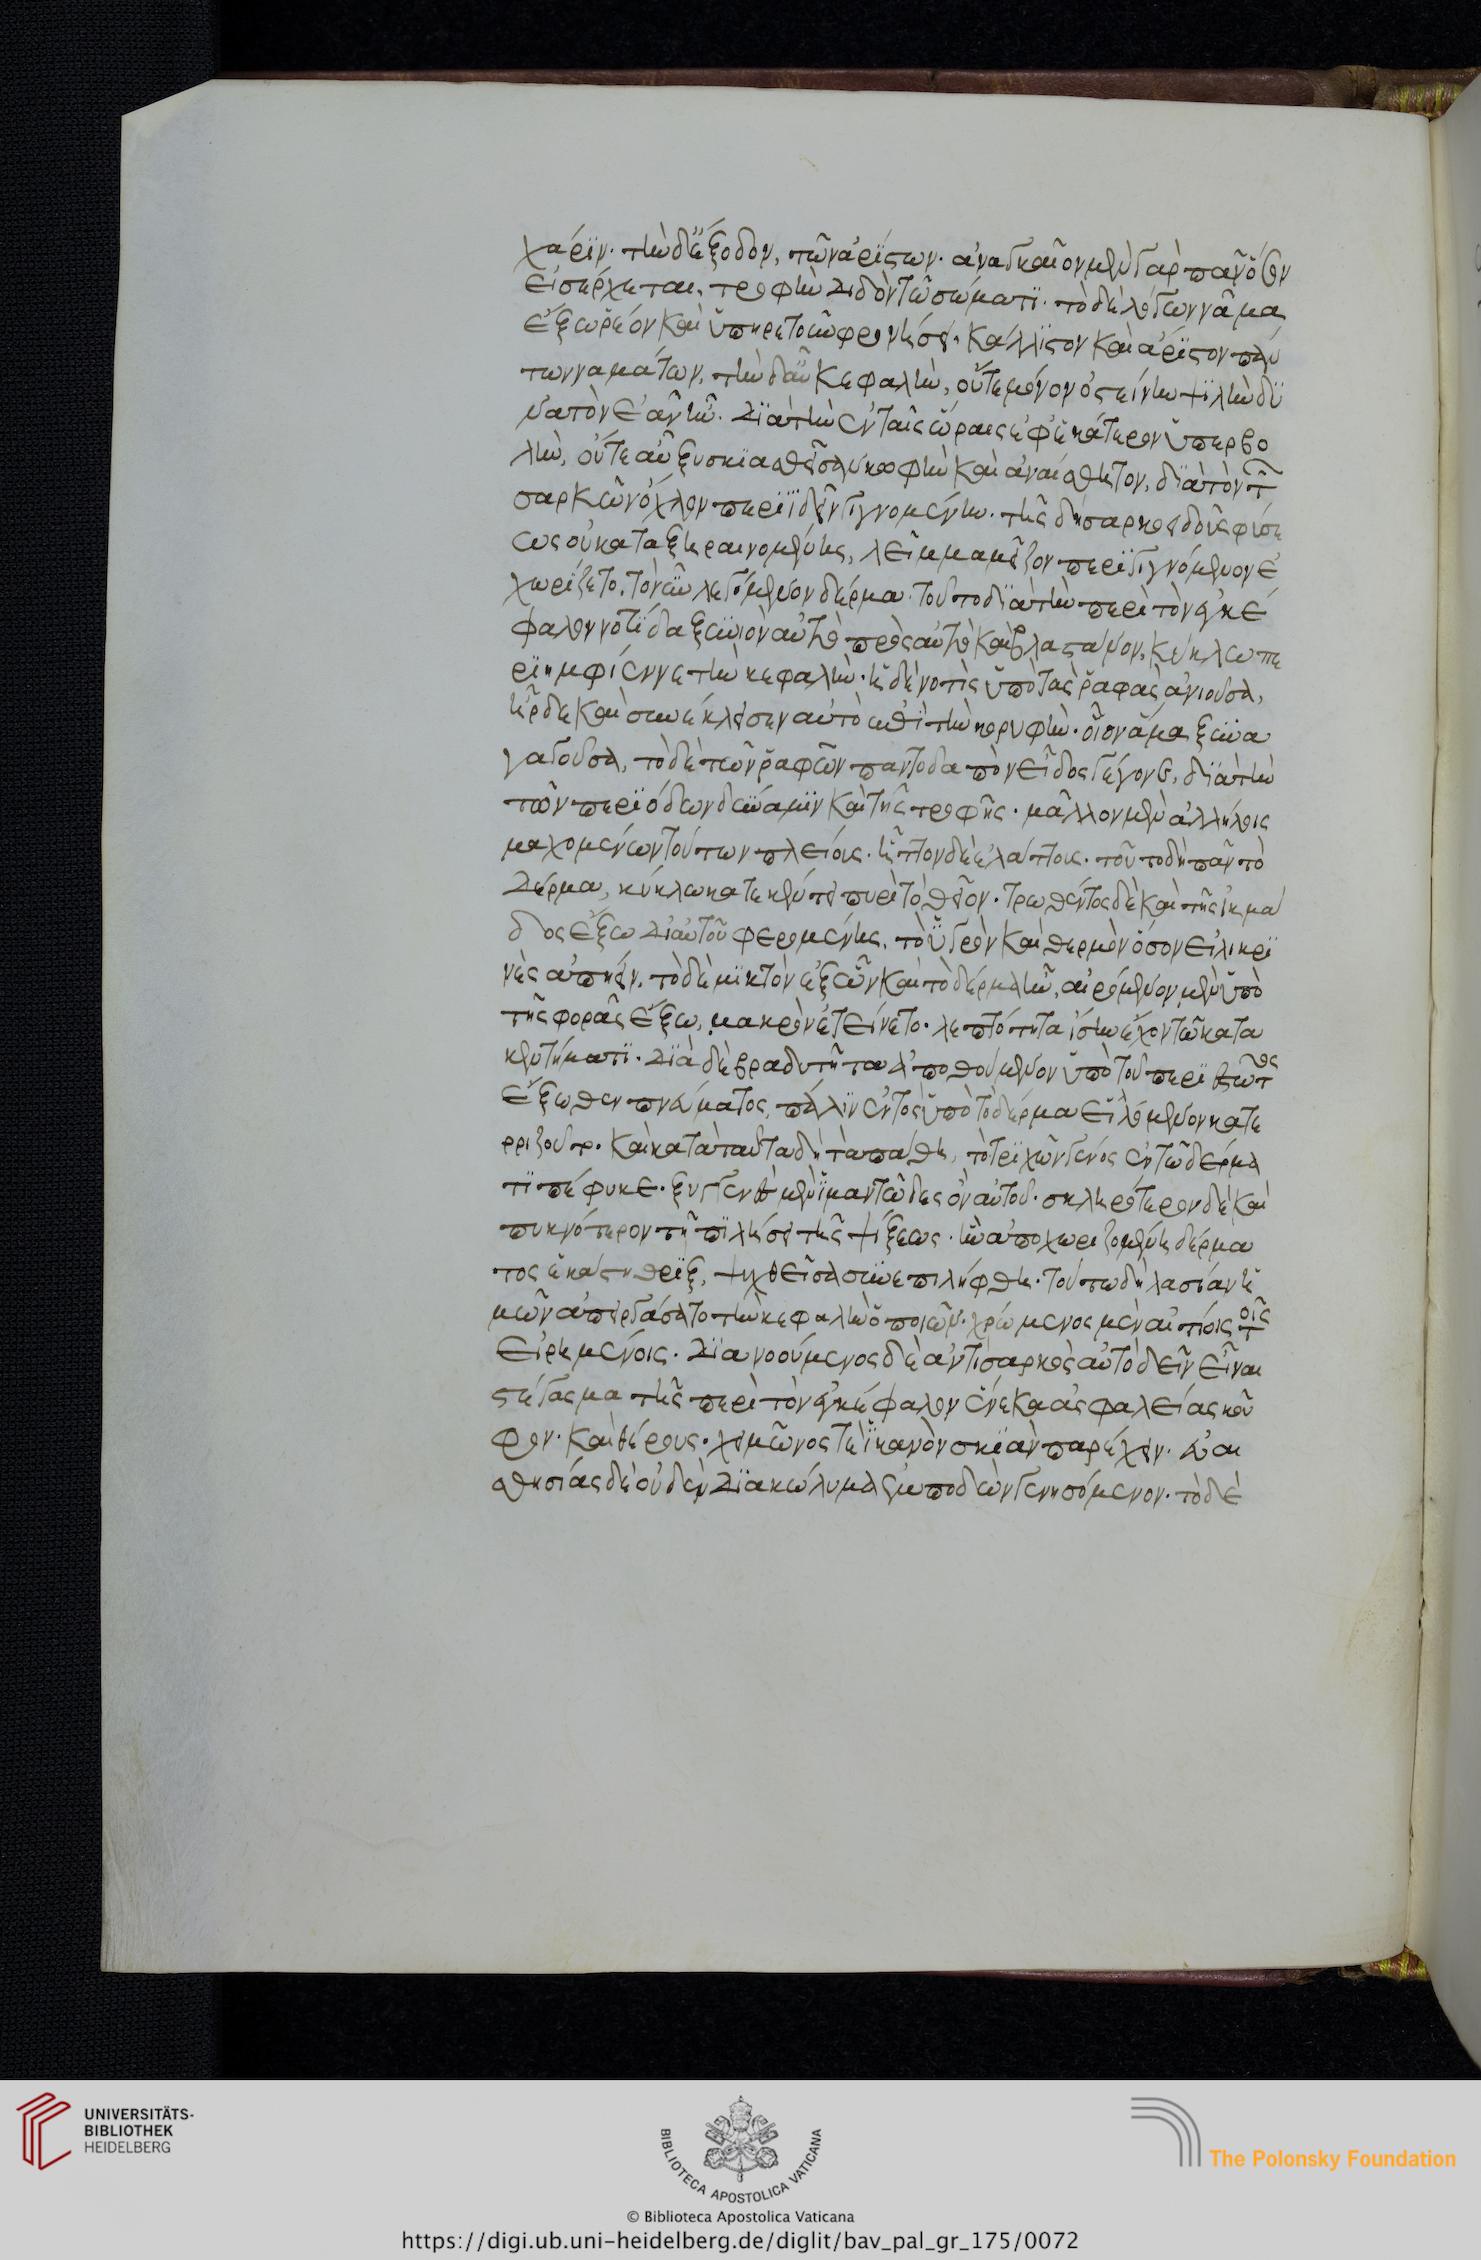 χάριν· τὴν δ' ἔξοδον, τῶν ἀρίστων· ἀναγκαῖον μὲν γὰρ πᾶν ὅσον
εἰσέρχεται, τροφὴν διδὸν τῶ σώματι· τὸ δὲ λόγων νᾶμα
ἔξω ῥέον καὶ ὑπηρετοῦν φρονήσει· κάλλιστον καὶ ἄριστον πάν
των ναμάτων, τὴν δ' αὖ κεφαλὴν, οὔτε μόνον ὀστεΐνην ψιλὴν δυ
νατὸν ἐᾶν ἦν· διὰ τὴν ἐν ταῖς ὥραις ἐφ' ἑκάτερον ὑπερβο
λὴν, οὔτε αὖ ξυσκιασθεῖσαν κωφὴν καὶ ἀναίσθητον, διὰ τὸν τῶν
σαρκῶν ὄχλον περιϊδεῖν γιγνομένην· τῆς δὴ σαρκοειδοῦς φύσε
ως οὐ καταξηραινομένης, λεῖμμα μεῖζον περιγιγνόμενον ἐ
χωρίζετο, τὸ νῦν λεγόμενον δέρμα· τοῦτο διὰ τὴν περὶ τὸν ἐγκέ
φαλον νοτίδα ξυνιὸν αὐτὸ πρὸς αὑτὸ καὶ βλαστάνον, κύκλω πε
ριημφιέννυε τὴν κεφαλήν· ἡ δὲ νοτὶς ὑπὸ τὰς ῥαφὰς ἀνιοῦσα,
ἦρδε καὶ συνέκλεισεν αὐτὸ ἐπὶ τὴν κορυφήν· οἷον ἅμμα ξυνα
γαγοῦσα, τὸ δὲ τῶν ῥαφῶν παντοδαπὸν εἶδος γέγονε, διὰ τὴν
τῶν περιόδων δύναμιν καὶ τῆς τροφῆς· μᾶλλον μὲν ἀλλήλοις
μαχομένων τούτων πλείους· ἧττον δὲ ἐλάττους· τοῦτο δὴ πᾶν τὸ
δέρμα, κύκλω κατεκέντει πυρὶ τὸ θεῖον· τρωθέντος δὲ καὶ τῆς ἰκμά
δος ἔξω δι' αὐτοῦ φερομένης, τὸ ὑγρὸν καὶ θερμὸν ὅσον εἰλικρι
νὲς ἀπῄειν, τὸ δὲ μικτὸν ἐξ ὧν καὶ τὸ δέρμα ἦν, αἰρόμενον μὲν ὑπὸ
τῆς φορᾶς ἔξω, μακρὸν ἐτείνετο· λεπτότητα ἴσην ἔχον τῶ κατα
κεντήματι· διὰ δὲ βραδυτῆτα ἀπωθούμενον ὑπὸ τοῦ περιεστῶτος
ἔξωθεν πνεύματος, πάλιν ἐντὸς ὑπὸ τὸ δέρμα εἰλόμενον κατε
ρριζοῦτο· καὶ κατὰ ταῦτα δὴ τὰ πάθη, τὸ τριχῶν γένος ἐν τῶ δέρμα
τι πέφυκε· ξυγγενὲς μὲν ἱμαντῶδες ὂν αὐτοῦ· σκληρότερον δὲ καὶ
πυκνότερον τῇ πιλήσει τῆς ψύξεως· ἣν ἀποχωριζομένη δέρμα
τος ἑκάστη θρὶξ, ψυχθεῖσα συνεπιλήφθη· τούτω δὴ λασίαν ἡ
μῶν ἀπειργάσατο τὴν κεφαλὴν ὁ ποιῶν· χρώμενος μὲν αἰτίοις τοῖς
εἰρημένοις· διανοούμενος δὲ ἀντὶ σαρκὸς αὐτὸ δεῖν εἶναι
στέγασμα τῆς περὶ τὸν ἐγκέφαλον ἕνεκα ἀσφαλείας κοῦ
φον· καὶ θέρους· χειμῶνός τε ἱκανὸν σκιὰν παρέχειν· εὐαι
σθησίας δὲ οὐδὲν διακώλυμα ἐμποδὼν γενησόμενον· τὸ δὲ
UNIVERSITÄTS-
BIBLIOTHEK
HEIDELBERG
BIBLIOTECA APOSTOLICA VATICANA
The Polonsky Foundation
© Biblioteca Apostolica Vaticana
https://digi.ub.uni-heidelberg.de/diglit/bav_pal_gr_175/0072